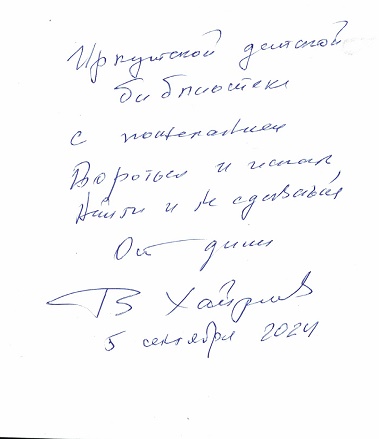 Иркутской детской
библиотеке
с пожеланием
Бороться и искать
Найти и не сдаваться
От души
В Хайрюзов
5 сентября 2024